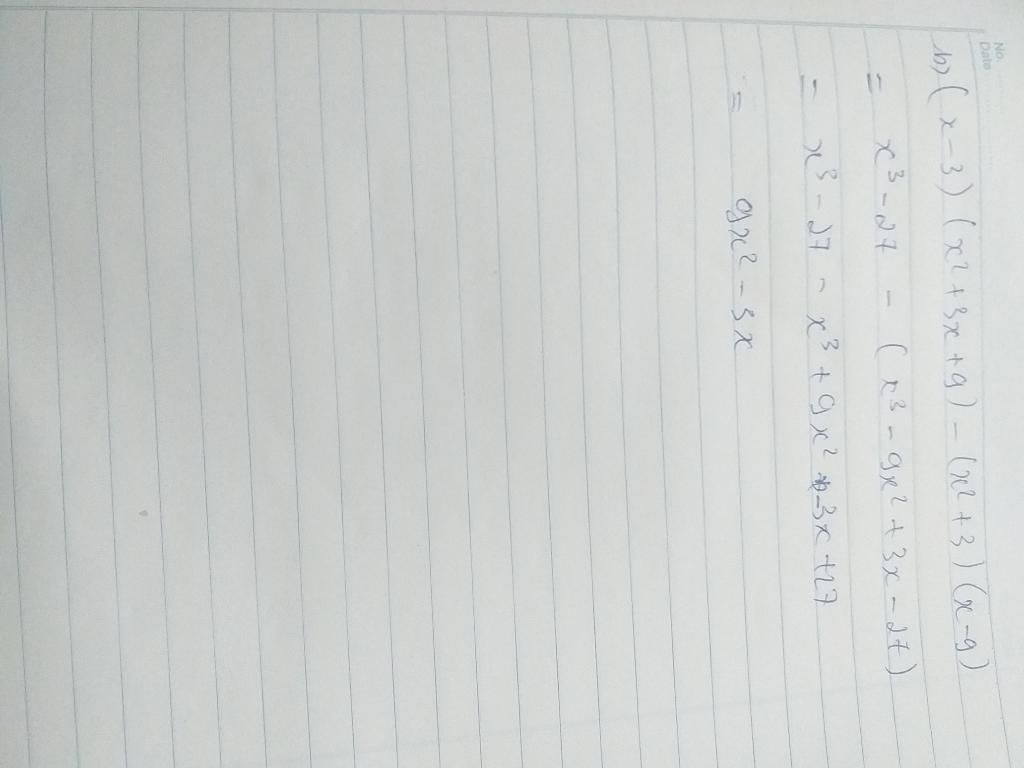 No.
Date
b) (x-3)(x²+3x+9) - (x²+3)(x-9)
= x³-27 - (x³-9x²+3x-27)
= x³-27 - x³+9x²-3x+27
= 9x²-3x